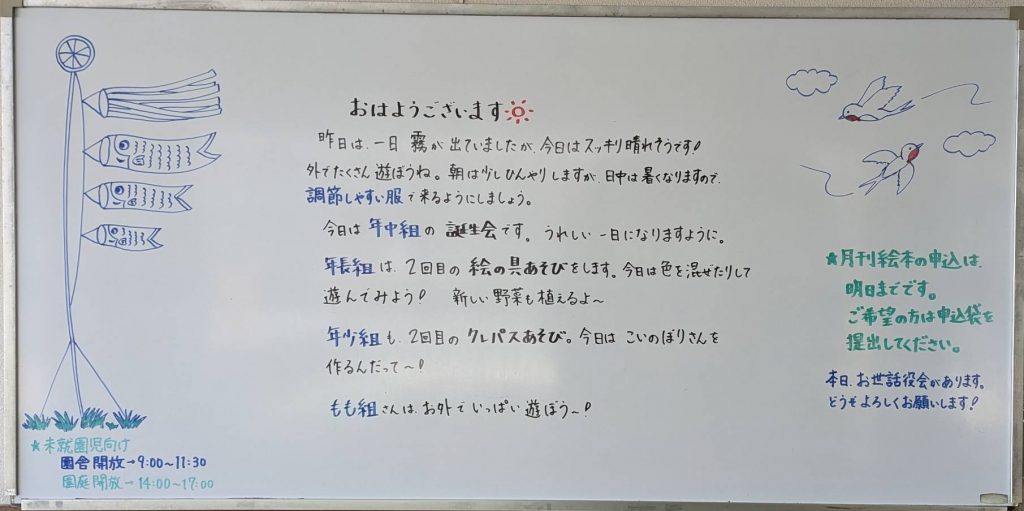 おはようございます
昨日は、一日 霧が出ていましたが、今日はスッキリ晴れそうです!
外でたくさん遊ぼうね。朝は少しひんやりしますが、日中は暑くなりますので、
調節しやすい服で来るようにしましょう。
今日は年中組の誕生会です。うれしい一日になりますように。
年長組は、2回目の絵の具あそびをします。今日は色を混ぜたりして
遊んでみよう! 新しい野菜も植えるよ~
年少組も、2回目のクレパスあそび。今日はこいのぼりさんを
作るんだって~!
もも組さんは、お外でいっぱい遊ぼう~!
★月刊絵本の申込は、
明日までです。
ご希望の方は申込袋を
提出してください。
本日、お世話役会があります。
どうぞよろしくお願いします!
★未就園児向け
園舎開放→9:00~11:30
園庭開放→14:00~17:00